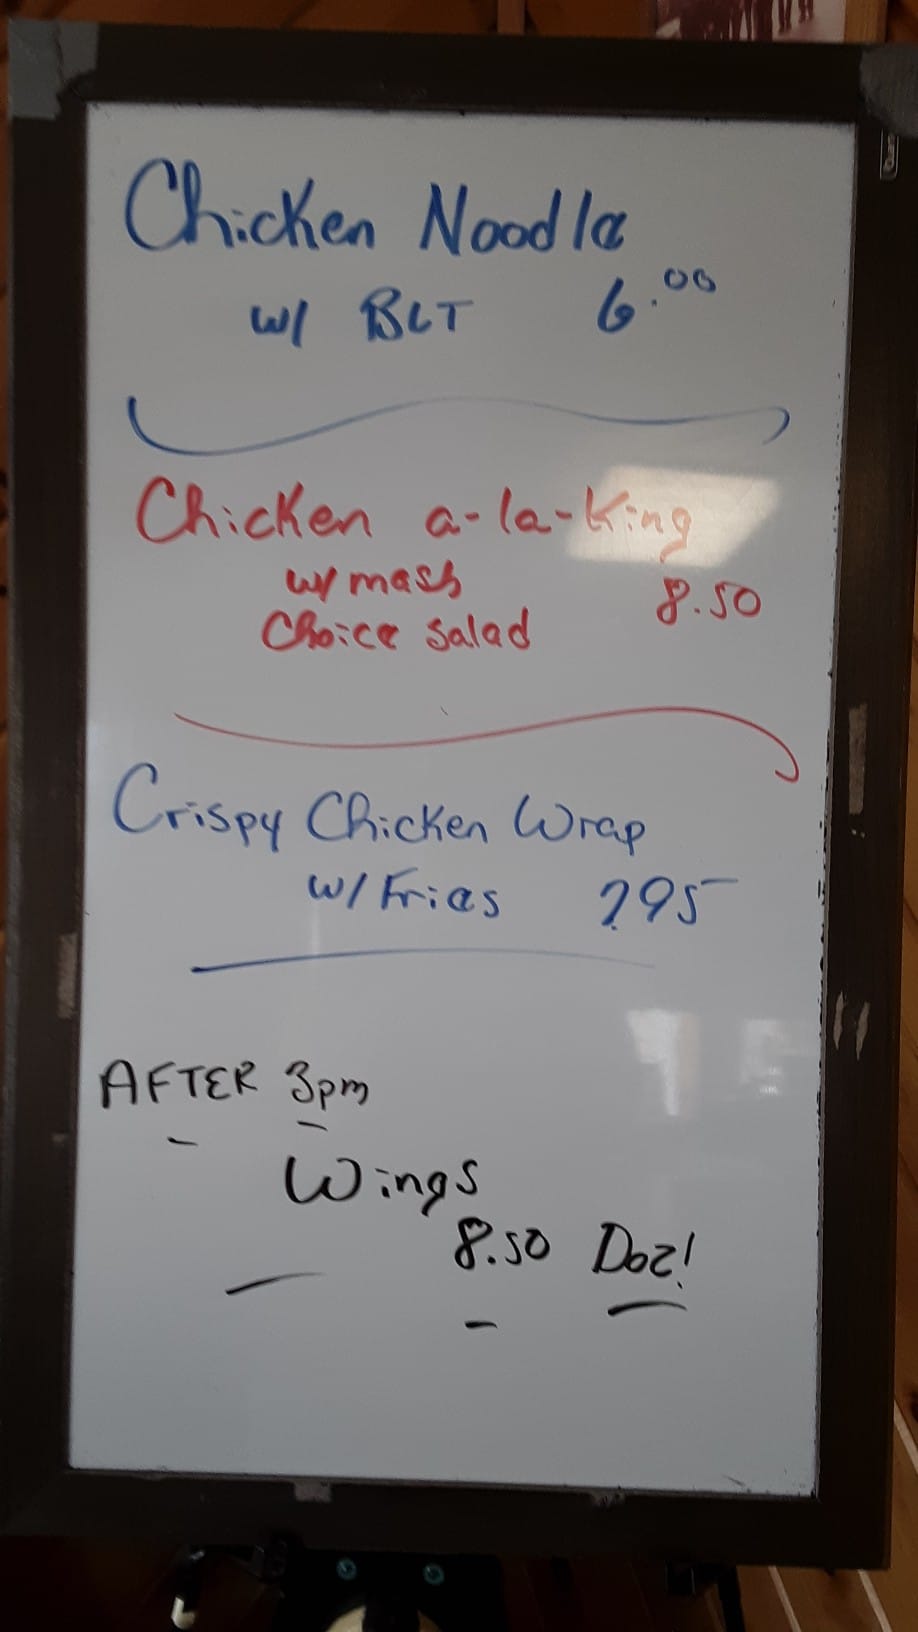 Chicken Noodle
w/ BLT 6.00
Chicken a-la-King
w/ mash 8.50
Choice Salad
Crispy Chicken Wrap
w/ Fries 7.95
AFTER 3pm
Wings
8.50 Doz!